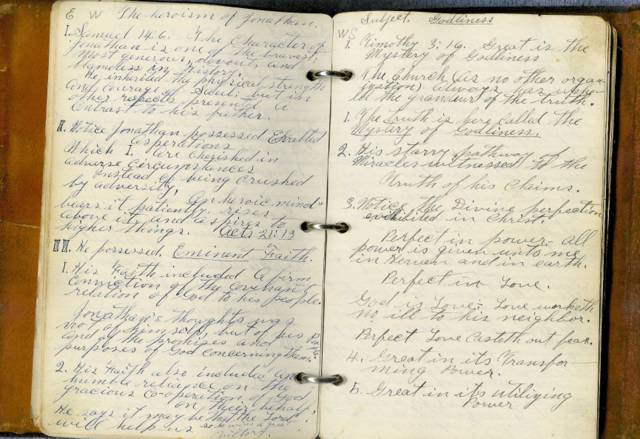 E W The heroism of Jonathan.
I. Samuel 14:6. The Character of
Jonathan is one of the bravest,
Most generous, devout and
blameless in history.
He inherited the physical strength
and courage of Saul; but in
other respects presented a
Contrast to his father.
II. Notice Jonathan possessed Exalted
asperations
Which I. Were Cherished in
adverse circumstances
Instead of being Crushed
by adversity,
heroic mind
bears it patiently, rises
above it and aspires to
higher things. Acts 21:13
III. He possessed Eminent Faith.
1. His Faith included A firm
Conviction of the Covenant
relation of God to his people.
Jonathan's thoughts was
not of himself but of his
and of the promises and
purposes of God concerning them.
2. His Faith also Included an
humble reliance on the
gracious Co-operation of God
on their behalf,
He says it may be that the Lord
will help us
Subject. Godliness
WS
1. Timothy 3:16. Great is the
Mystery of Godliness
The Church (as no other organ-
ization) always has
the grandeur of the truth.
1. The Truth is for called the
Mystery of Godliness.
2. His starry pathway of
Miracles witnessed to the
truth of his Claims.
3. Notice the Divine perfection
exhibited in Christ.
Perfect in power. All
power is given unto me
in Heaven and in earth.
Perfect in Love.
God is Love: Love worketh
no ill to his neighbor.
Perfect Love Casteth out fear.
4. Great in its Transfor
ming Power.
5. Great in its Utilizing
Power